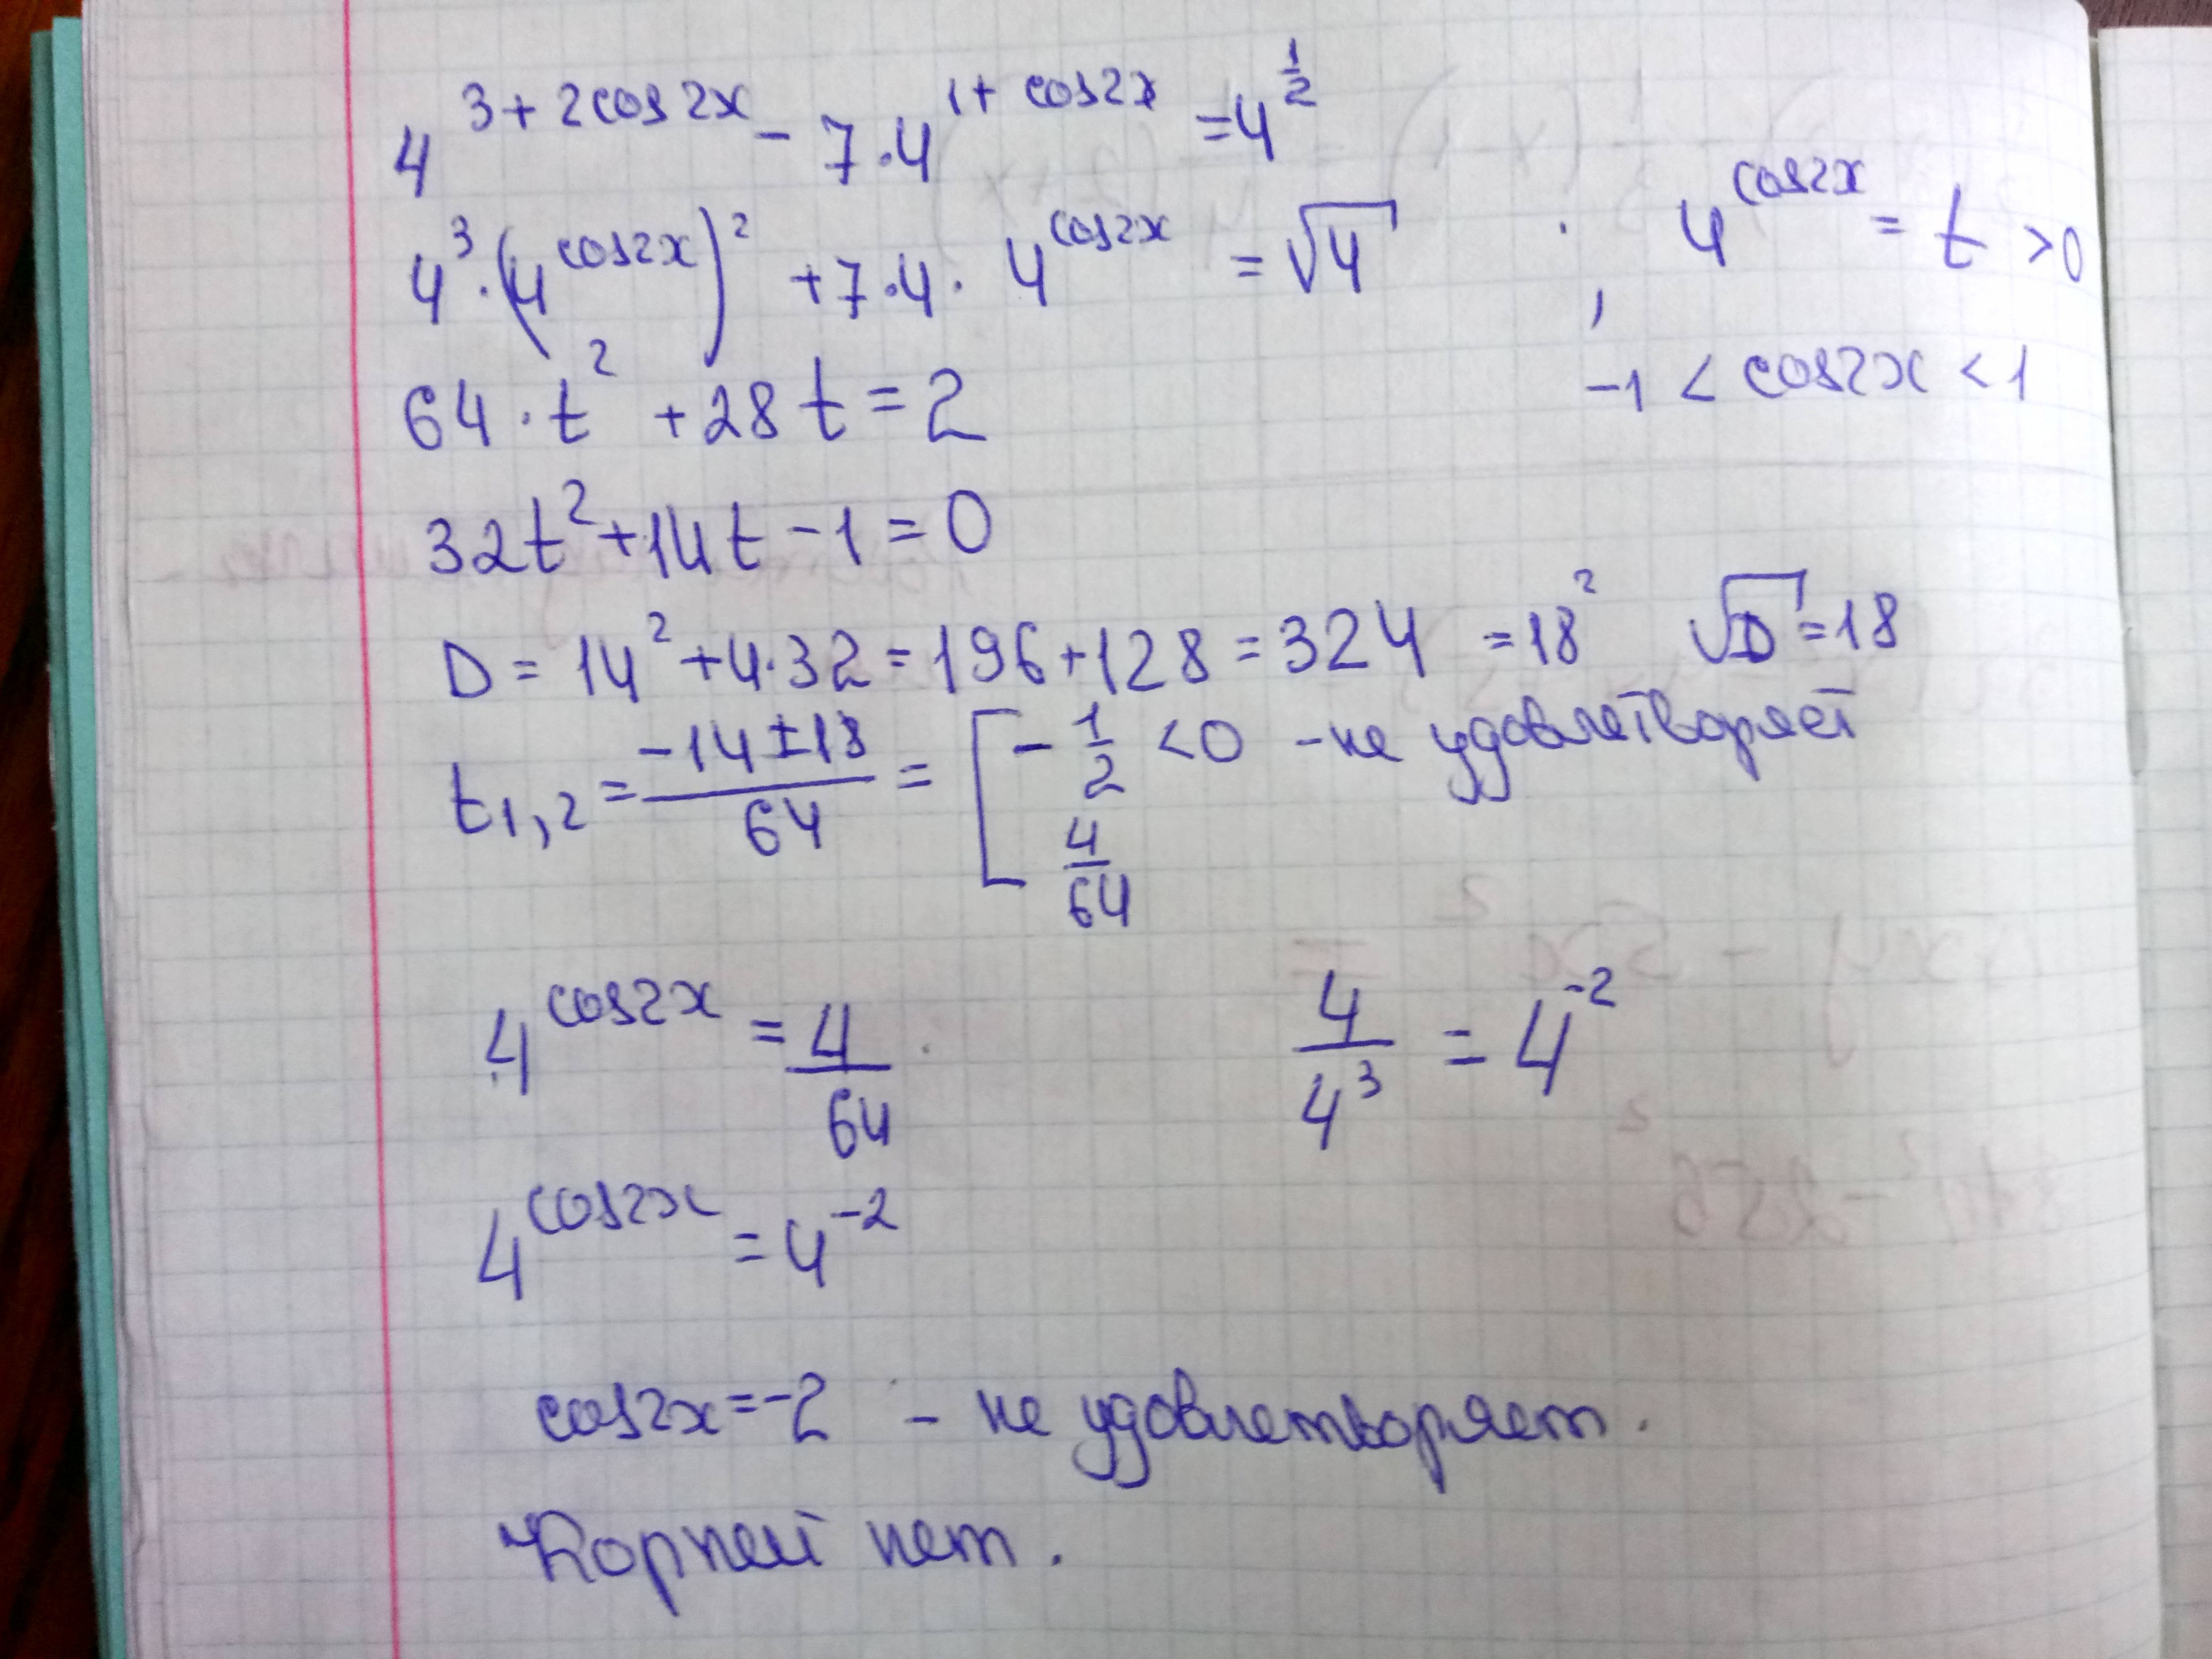 4^{3+2cos2x} - 7·4^{1+cos2x} = 4^{1/2}
4³·(4^{cos2x})² + 7·4·4^{cos2x} = √4 , 4^{cos2x} = t > 0
64·t² + 28t = 2 -1 < cos2x < 1
32t² + 14t - 1 = 0
D = 14² + 4·32 = 196 + 128 = 324 = 18² √D = 18
t₁,₂ = (-14 ± 18)/64 = [ -1/2 < 0 - не удовлетворяет
4/64
4^{cos2x} = 4/64 4/4³ = 4^{-2}
4^{cos2x} = 4^{-2}
cos2x = -2 - не удовлетворяет.
Корней нет.